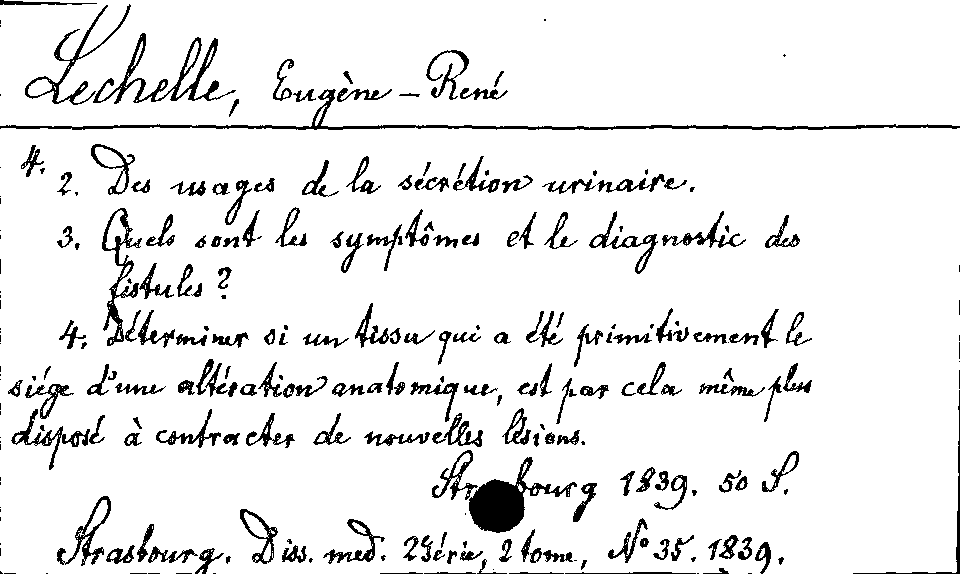 Lechelle, Eugène-René
4.
2. Des usages de la sécrétion urinaire.
3. Quels sont les symptômes et le diagnostic des
fistules?
4. Déterminer si un tissu qui a été primitivement le
siége d'une altération anatomique, est par cela même plus
disposé à contracter de nouvelles lésions.
Strasbourg 1839. 50 S.
Strasbourg. Diss. med. 2 Série, 2 tome, No 35. 1839.